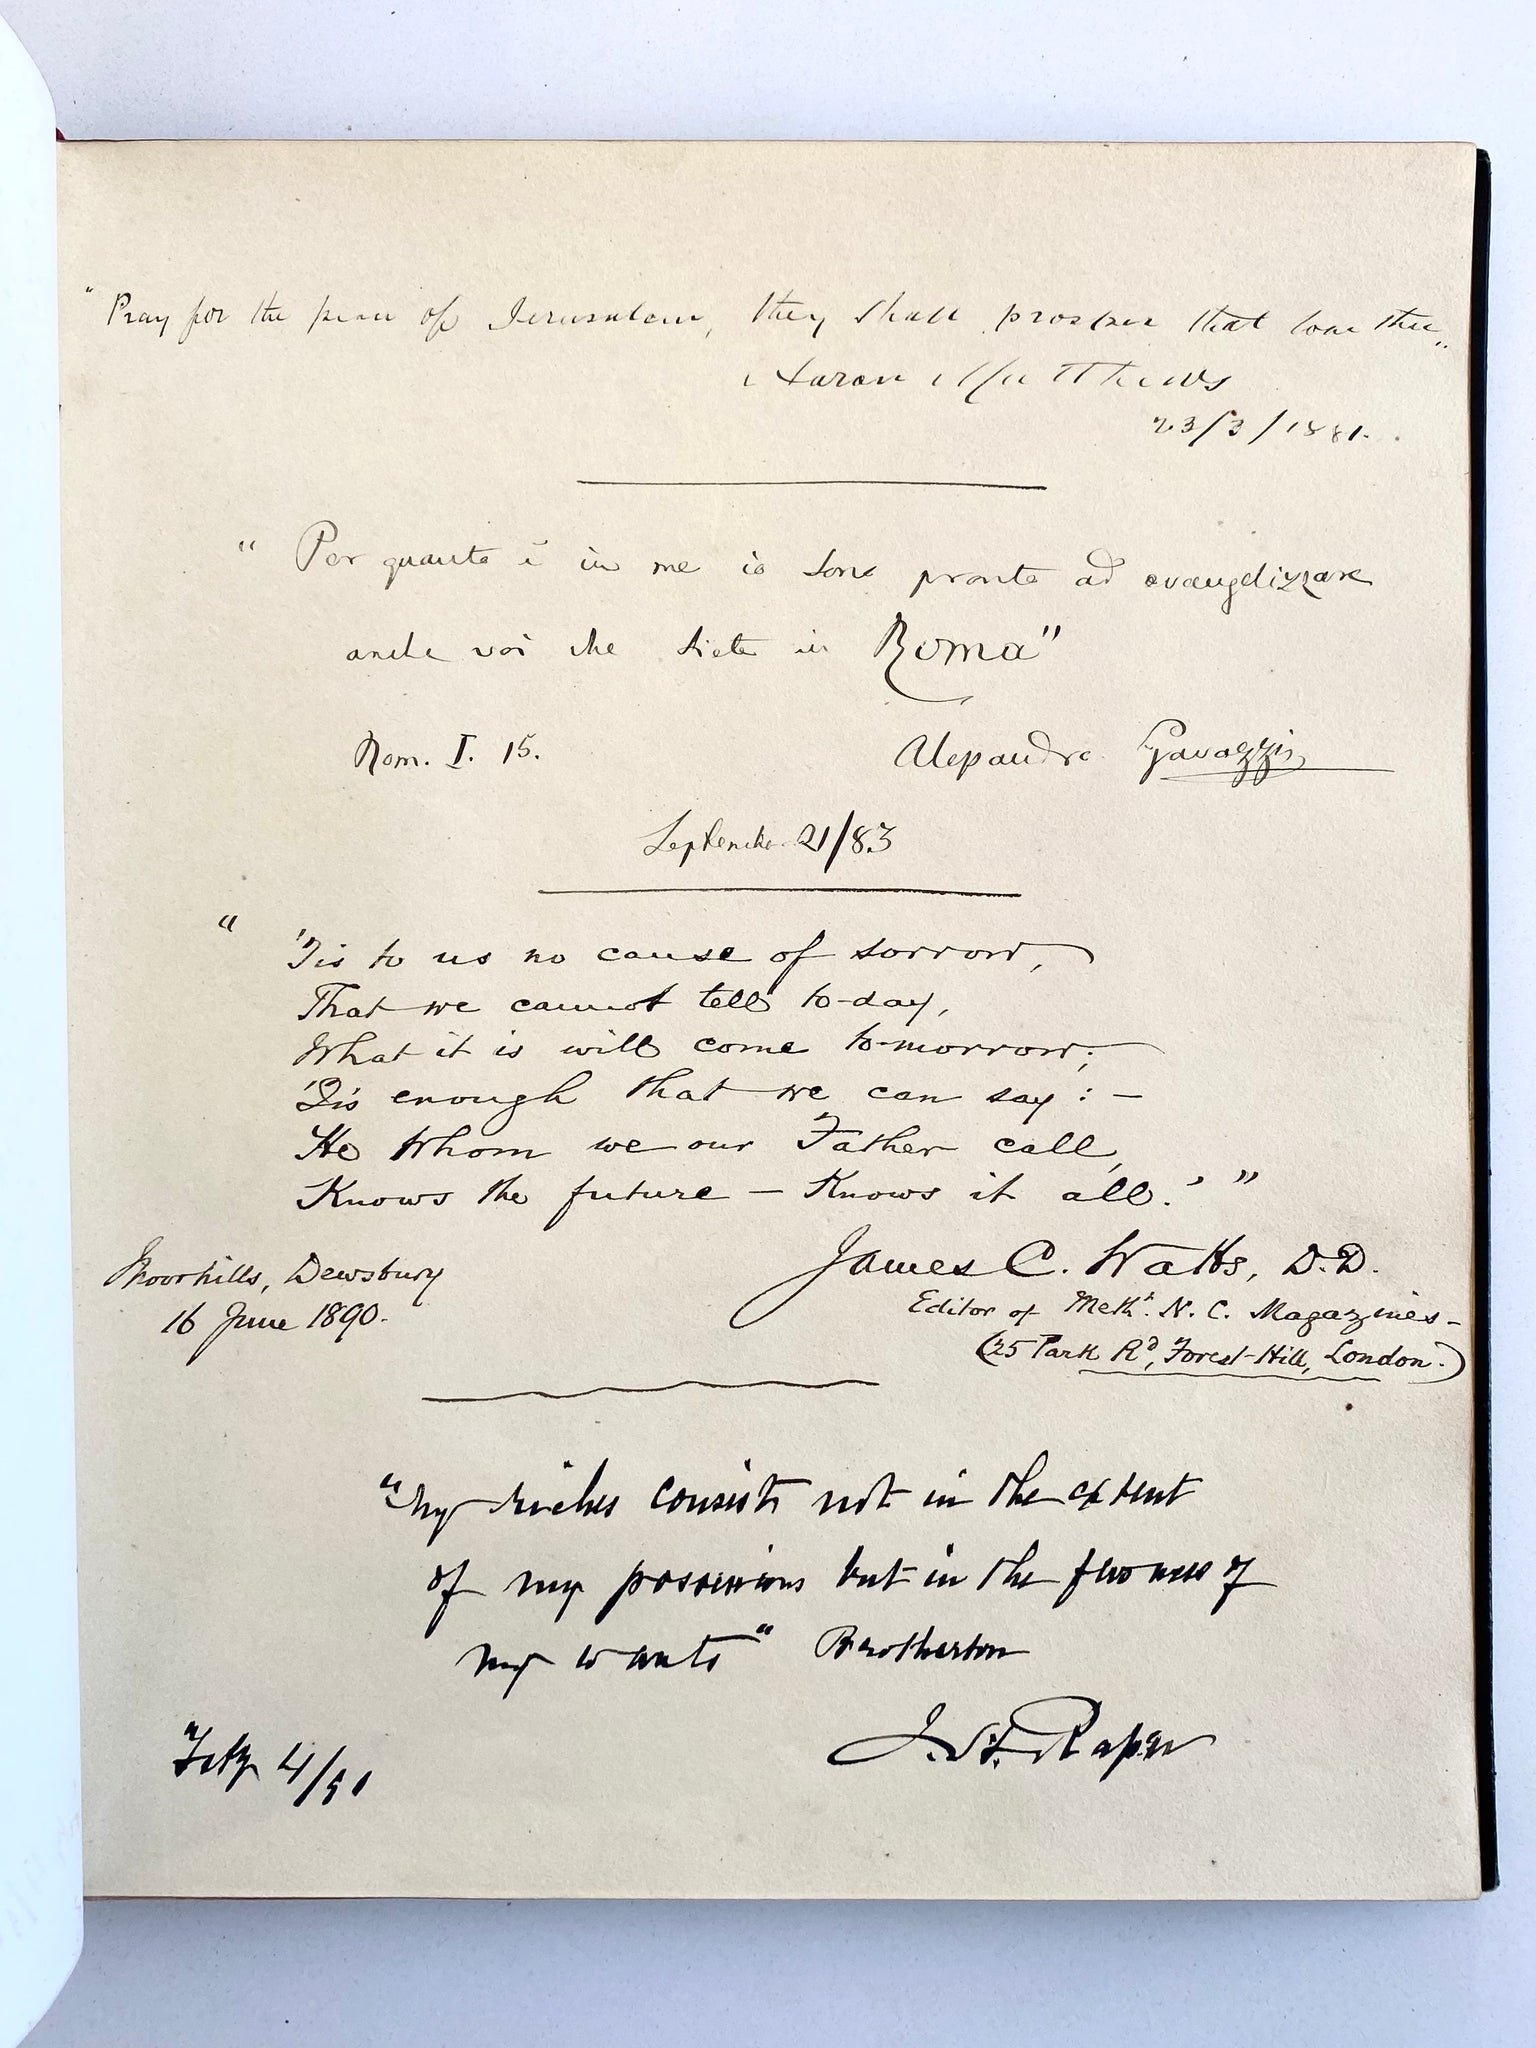 "Pray for the peace of Jerusalem, they shall prosper that love thee"
Aaron Matthews
23/3/1881.
"Per quanto è in me io sono pronto ad evangelizzare
anche voi che siete in Roma"
Rom. I. 15.
Alessandro Gavazzi
September 21/83
" 'Tis to us no cause of sorrow,
That we cannot tell to-day,
What it is will come to-morrow;
'Tis enough that we can say:-
'He whom we our Father call,
Knows the future – Knows it all.' "
James C. Watts, D.D.
Editor of Meth. N. C. Magazines-
(25 Park Rd, Forest-Hill, London.)
Moorhills, Dewsbury
16 June 1890.
"My riches consists not in the extent
of my possessions but in the fewness of
my wants" Brotherton
J. H. Raper
Feby 4/91